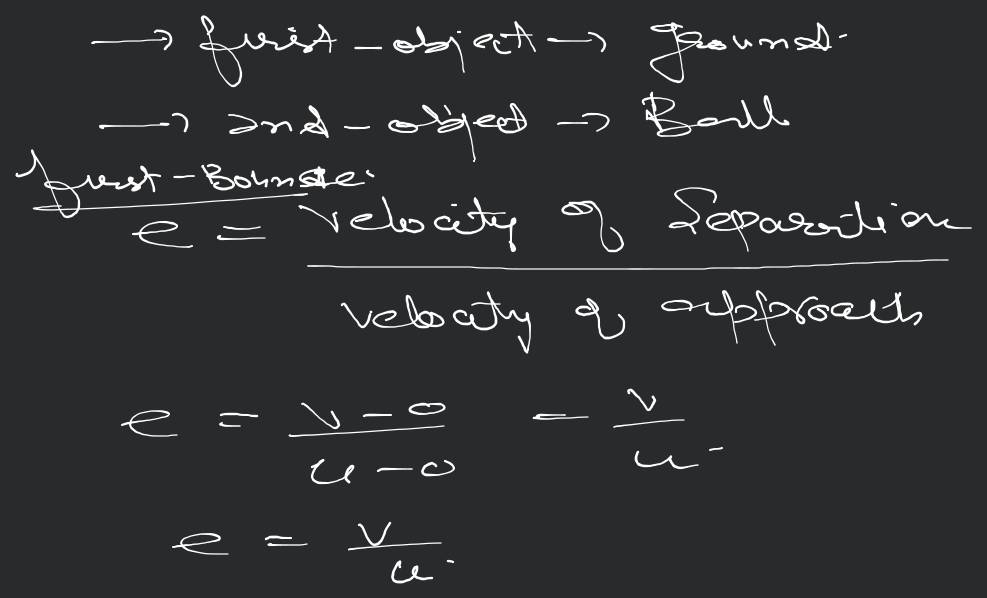 → first-object → ground.
→ 2nd-object → Ball
first-Bounce.
e = velocity of Separation / velocity of approach
e = v-0 / u-0 = v / u.
e = v / u.